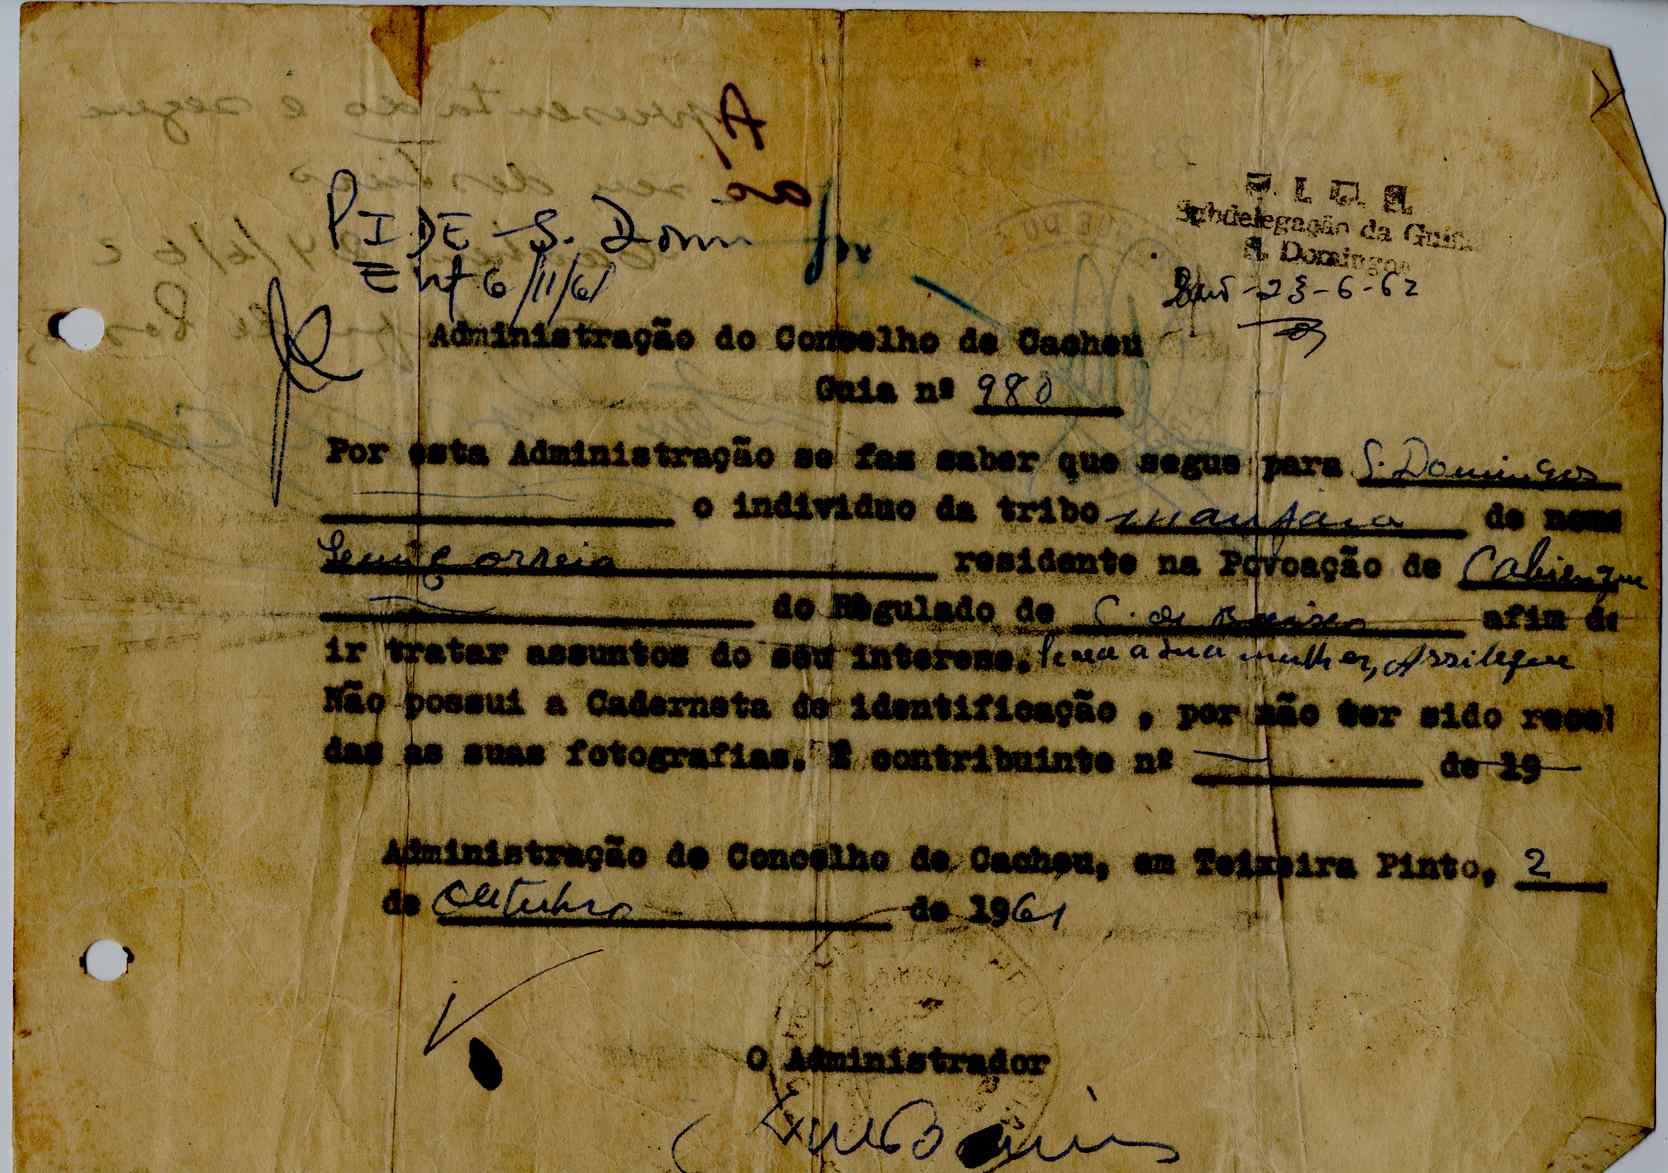 P. I. D. E.
Subdelegação da Guiné
S. Domingos
23-6-62
PIDE - S. Dom
Ent 6/11/61
Administração do Concelho de Cacheu
Guia nº 980
Por esta Administração se faz saber que segue para S. Domingos
o individuo da tribo manjaca de nome
Correia residente na Povoação de
do Régulado de C. de Baixo afim de
ir tratar assuntos do seu interese. Leva a sua mulher,
Não possui a Caderneta de identificação , por não ter sido rece
das as suas fotografias. É contribuinte nº de 19
Administração de Concelho de Cacheu, em Teixeira Pinto, 2
de Outubro de 1961
O Administrador